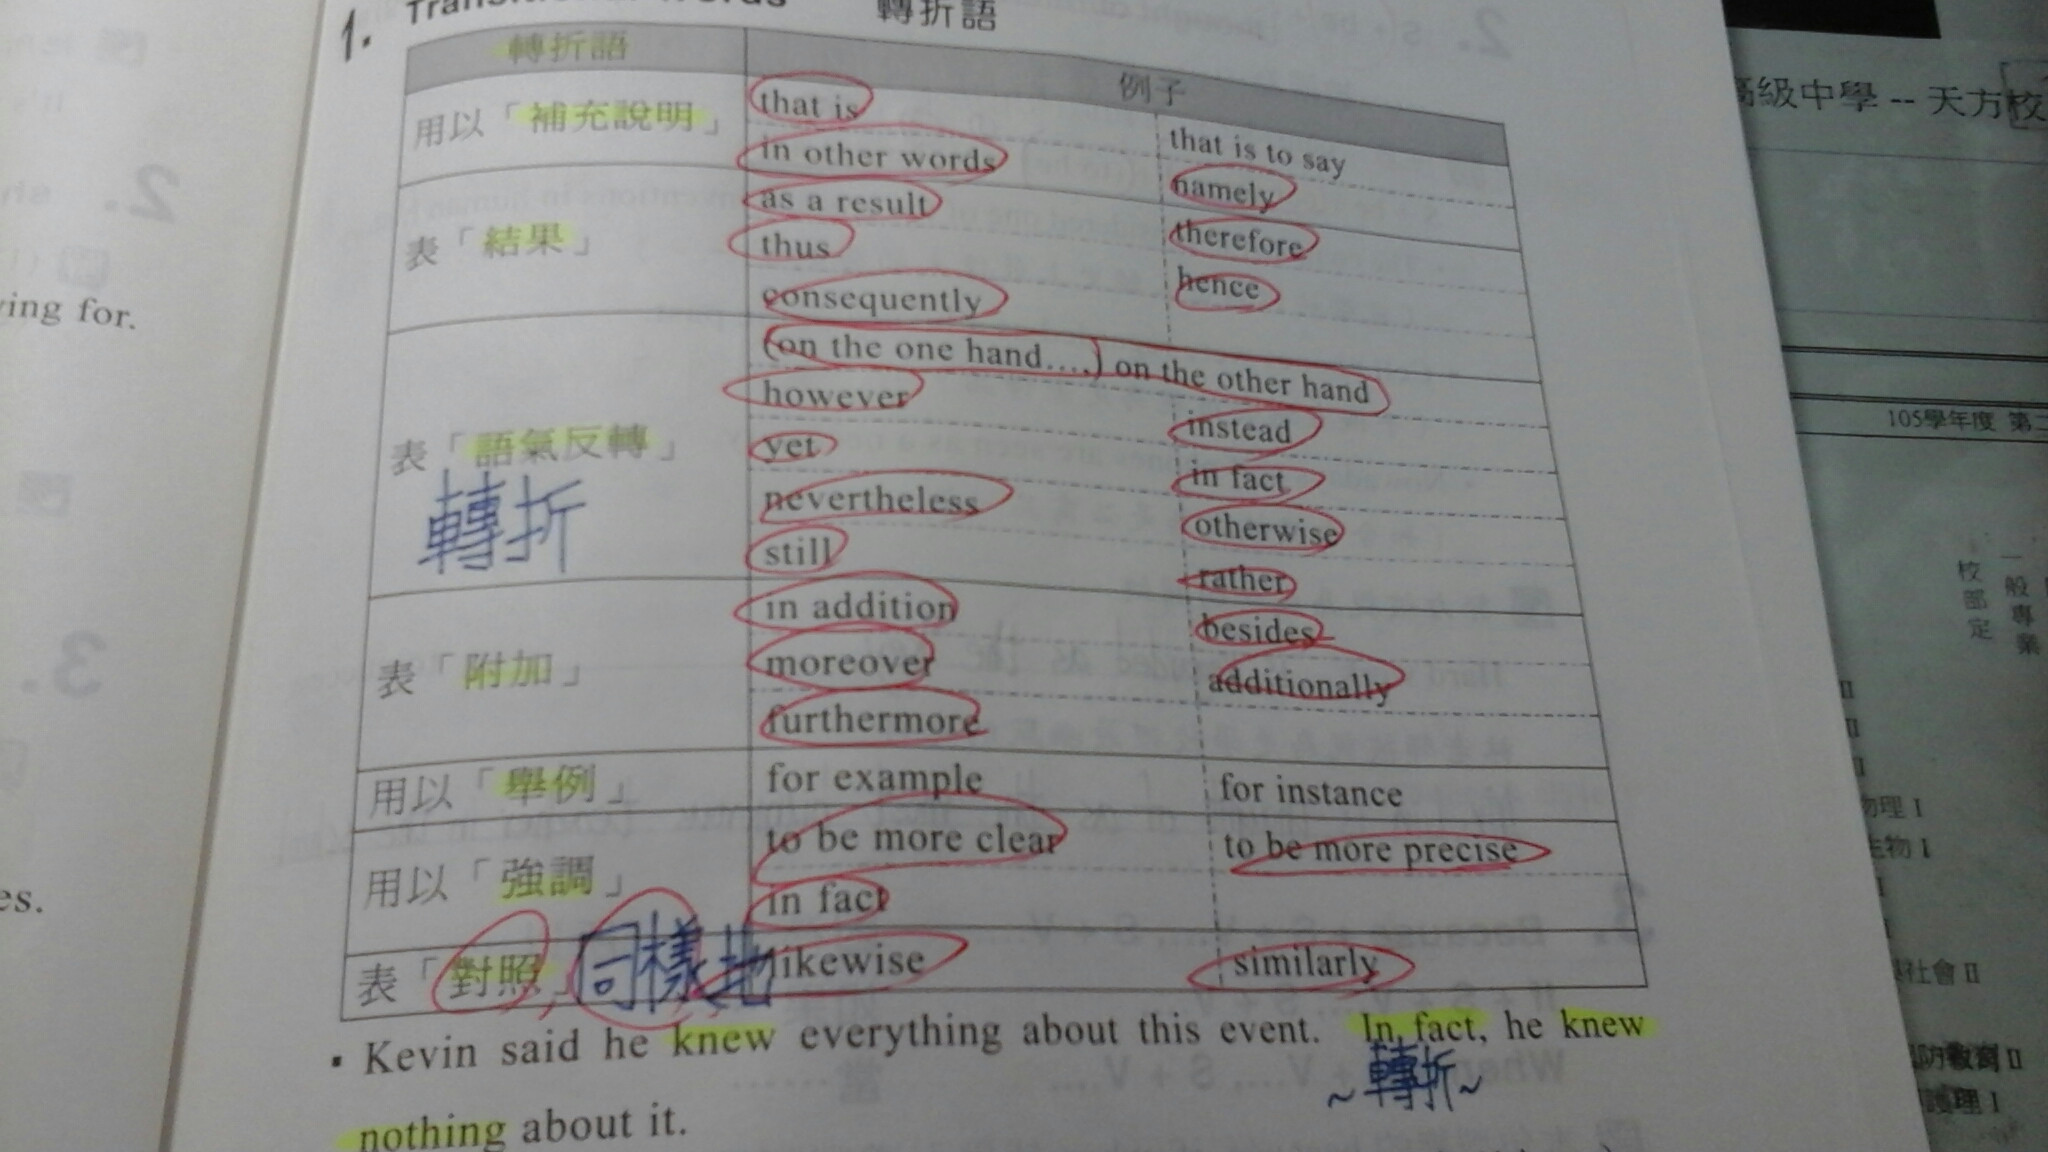 1. Transitional Words 轉折語
轉折語 例子
用以「補充說明」 that is that is to say
in other words namely
表「結果」 as a result therefore
thus hence
consequently
表「語氣反轉」 (on the one hand....) on the other hand
轉折
however instead
yet in fact
nevertheless otherwise
still rather
表「附加」 in addition besides
moreover additionally
furthermore
用以「舉例」 for example for instance
用以「強調」 to be more clear to be more precise
in fact
表「對照」 同樣地 likewise similarly
▪ Kevin said he knew everything about this event. In fact, he knew
~轉折~
nothing about it.
ying for.
es.
高級中學 -- 天方校
105學年度 第二
一般專業
校部定
物理 I
生物 I
社會 II
防教育 II
護理 I